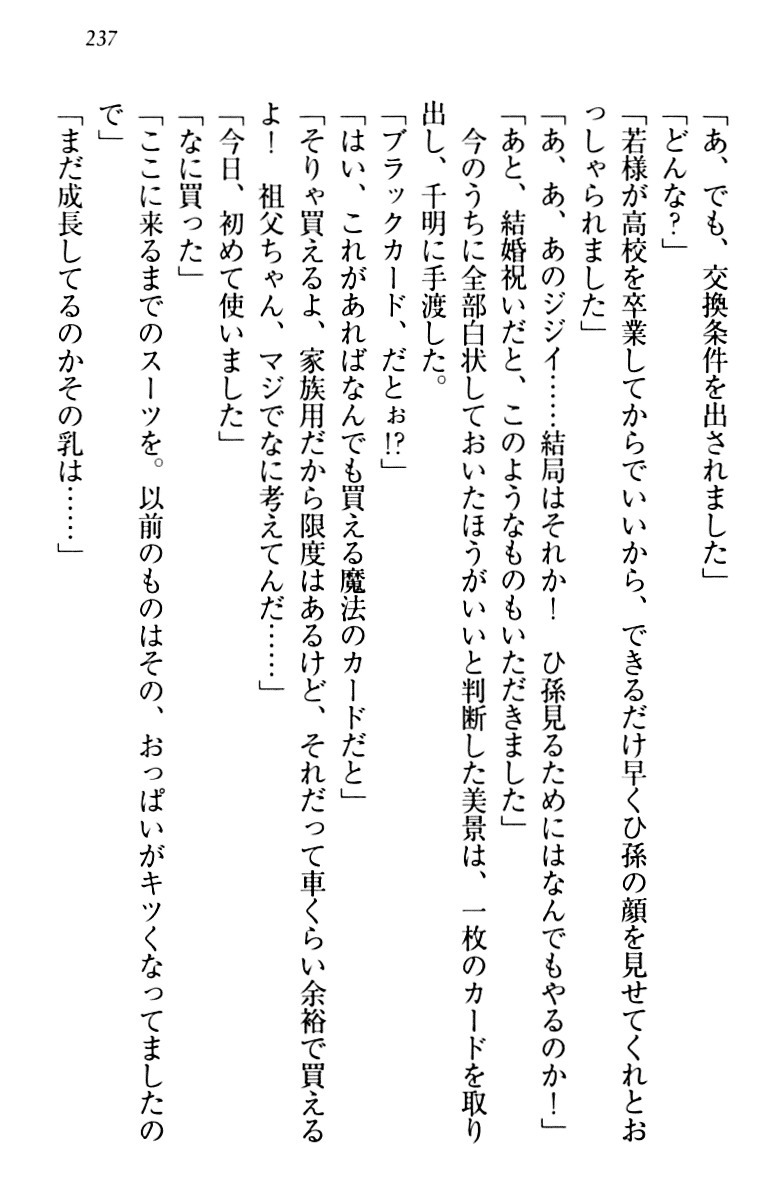 237
「あ、でも、交換条件を出されました」
「どんな？」
「若様が高校を卒業してからでいいから、できるだけ早くひ孫の顔を見せてくれとお
っしゃられました」
「あ、あ、あのジジイ……結局はそれか！　ひ孫見るためにはなんでもやるのか！」
「あと、結婚祝いだと、このようなものもいただきました」
　今のうちに全部白状しておいたほうがいいと判断した美景は、一枚のカードを取り
出し、千明に手渡した。
「ブラックカード、だとぉ!?」
「はい、これがあればなんでも買える魔法のカードだと」
「そりゃ買えるよ、家族用だから限度はあるけど、それだって車くらい余裕で買える
よ！　祖父ちゃん、マジでなに考えてんだ……」
「今日、初めて使いました」
「なに買った」
「ここに来るまでのスーツを。以前のものはその、おっぱいがキツくなってましたの
で」
「まだ成長してるのかその乳は……」